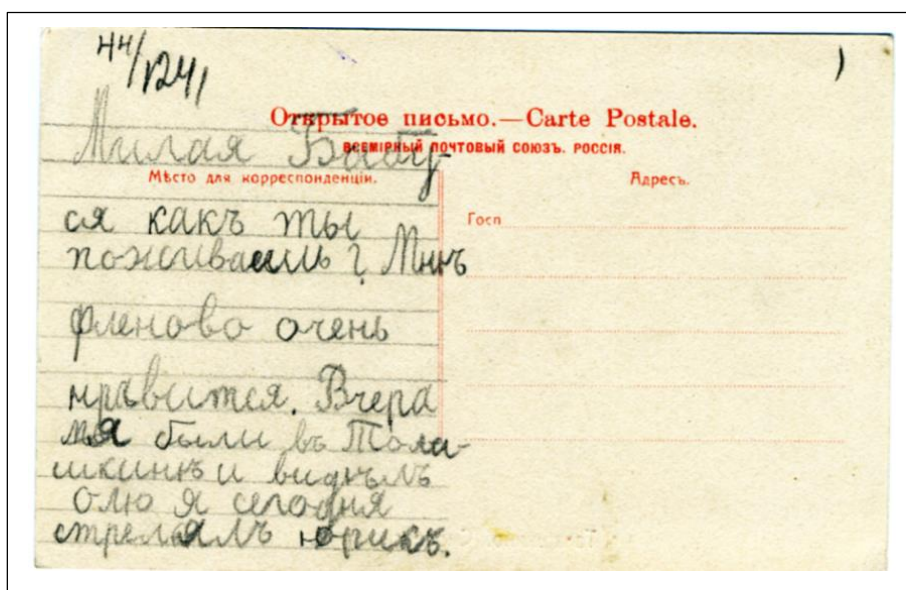 44/1241
Открытое письмо.—Carte Postale.
Милая Бабу-
ВСЕМІРНЫЙ ПОЧТОВЫЙ СОЮЗЪ. РОССІЯ.
Мѣсто для корреспонденціи.
Адресъ.
ся какъ ты
Госп
поживаешь? Мнѣ
фленово очень
нравится. Вчера
мы были въ Тала-
шкинѣ и видѣлъ
Олю я сегодня
стрелялъ юрикъ.